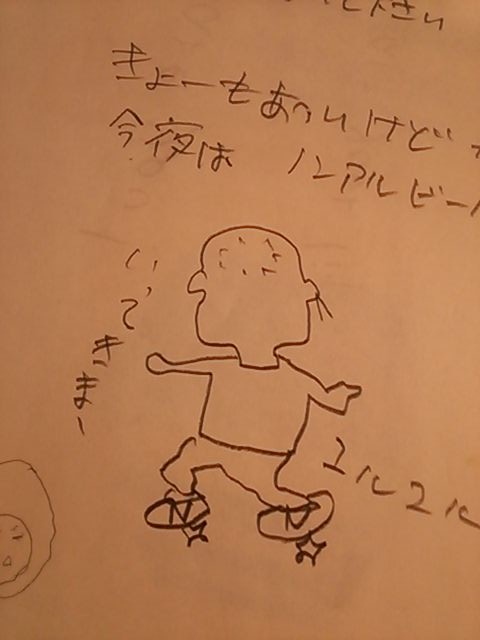 ださい
きょーもあついけど
今夜は ノンアルビール
いってきまー
ユルユル
N N